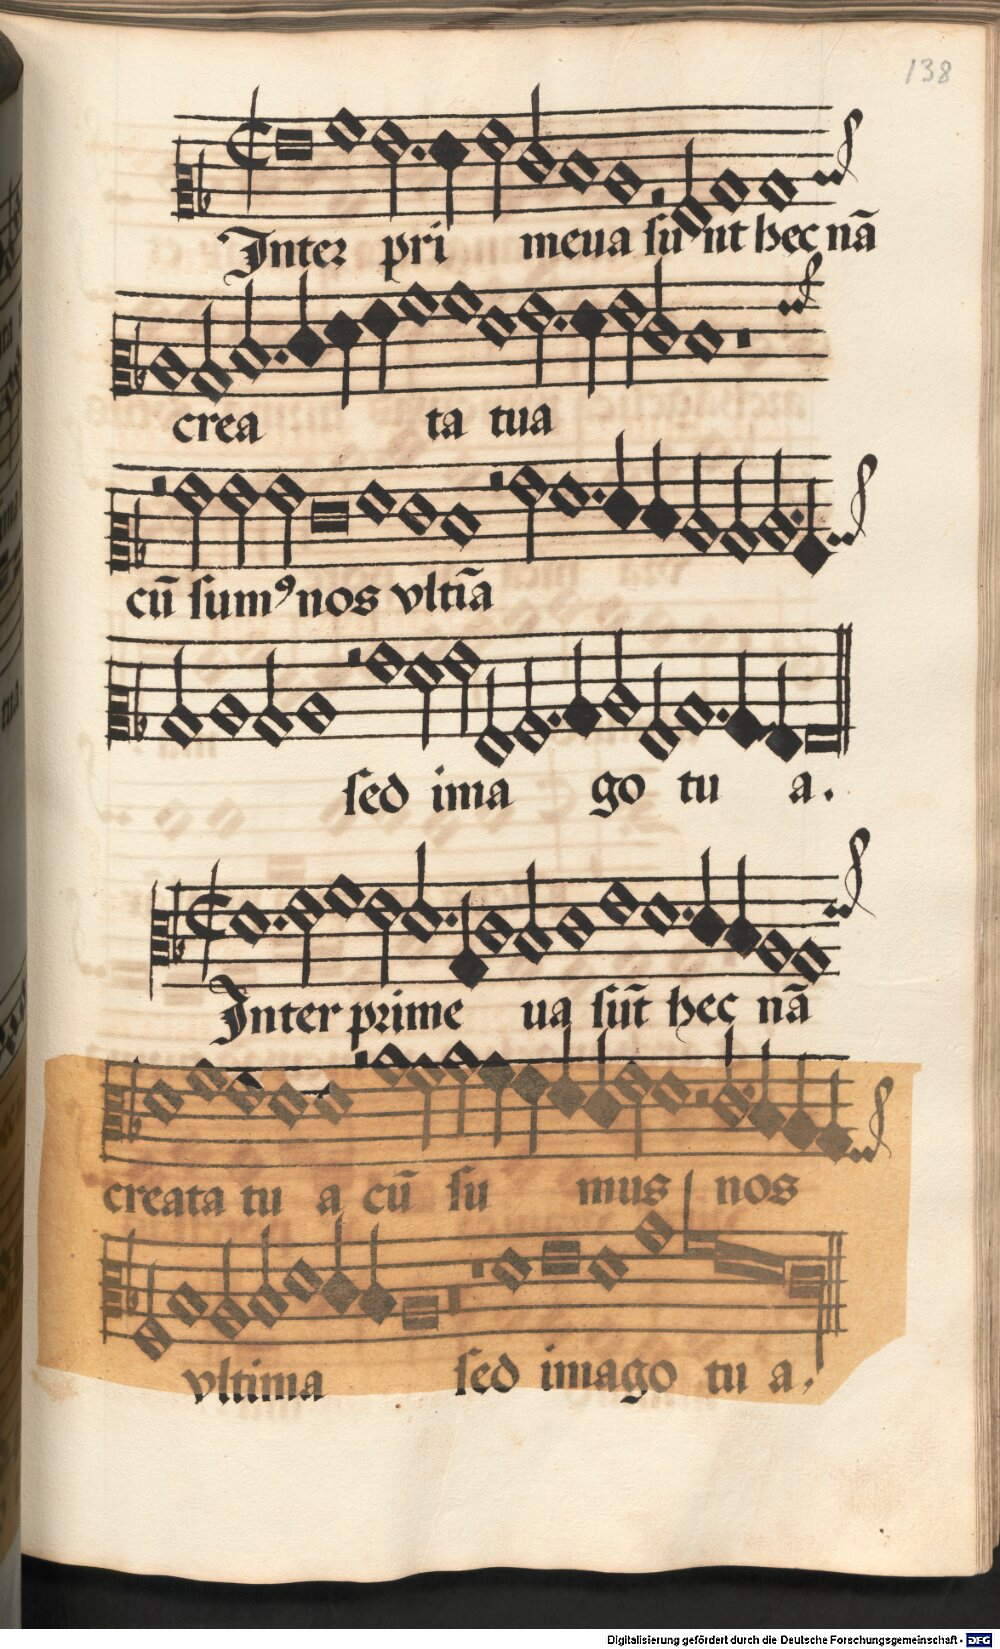 138
Inter pri meua sunt hec nā
crea ta tua
cū sumꝰ nos vltīa
sed ima go tu a.
Inter prime ua sūt hec nā
creata tu a cū su mus nos
vltima sed imago tu a.
Digitalisierung gefördert durch die Deutsche Forschungsgemeinschaft - DFG